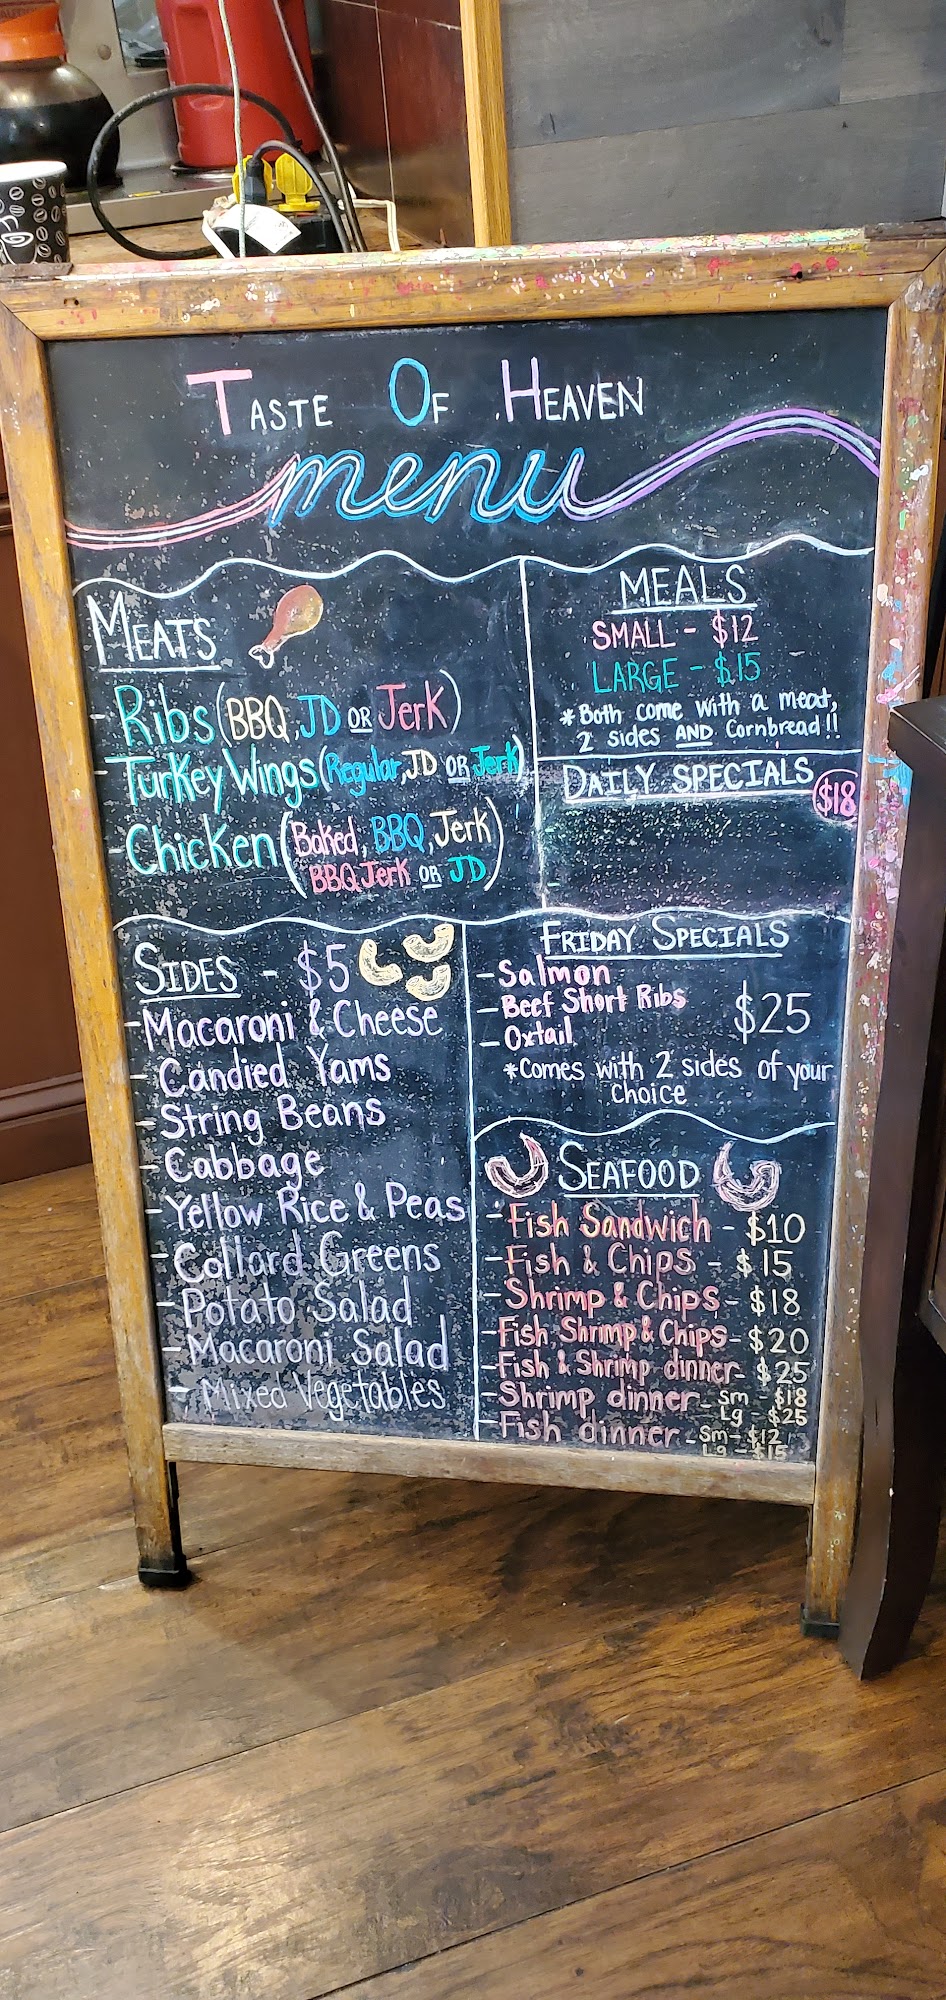 TASTE OF HEAVEN
menu
MEATS
- Ribs (BBQ, JD OR Jerk)
- Turkey Wings (Regular, JD OR Jerk)
- Chicken (Baked, BBQ, Jerk
BBQ Jerk OR JD)
MEALS
SMALL - $12
LARGE - $15
*Both come with a meat,
2 sides AND Cornbread!!
DAILY SPECIALS $18
-
SIDES - $5
- Macaroni & Cheese
- Candied Yams
- String Beans
- Cabbage
- Yellow Rice & Peas
- Collard Greens
- Potato Salad
- Macaroni Salad
- Mixed Vegetables
FRIDAY SPECIALS
- Salmon
- Beef Short Ribs $25
- Oxtail
*Comes with 2 sides of your
choice
SEAFOOD
- Fish Sandwich - $10
- Fish & Chips - $15
- Shrimp & Chips - $18
- Fish, Shrimp & Chips - $20
- Fish & Shrimp dinner - $25
- Shrimp dinner - Sm $18
Lg - $25
- Fish dinner - Sm - $12
Lg - $15